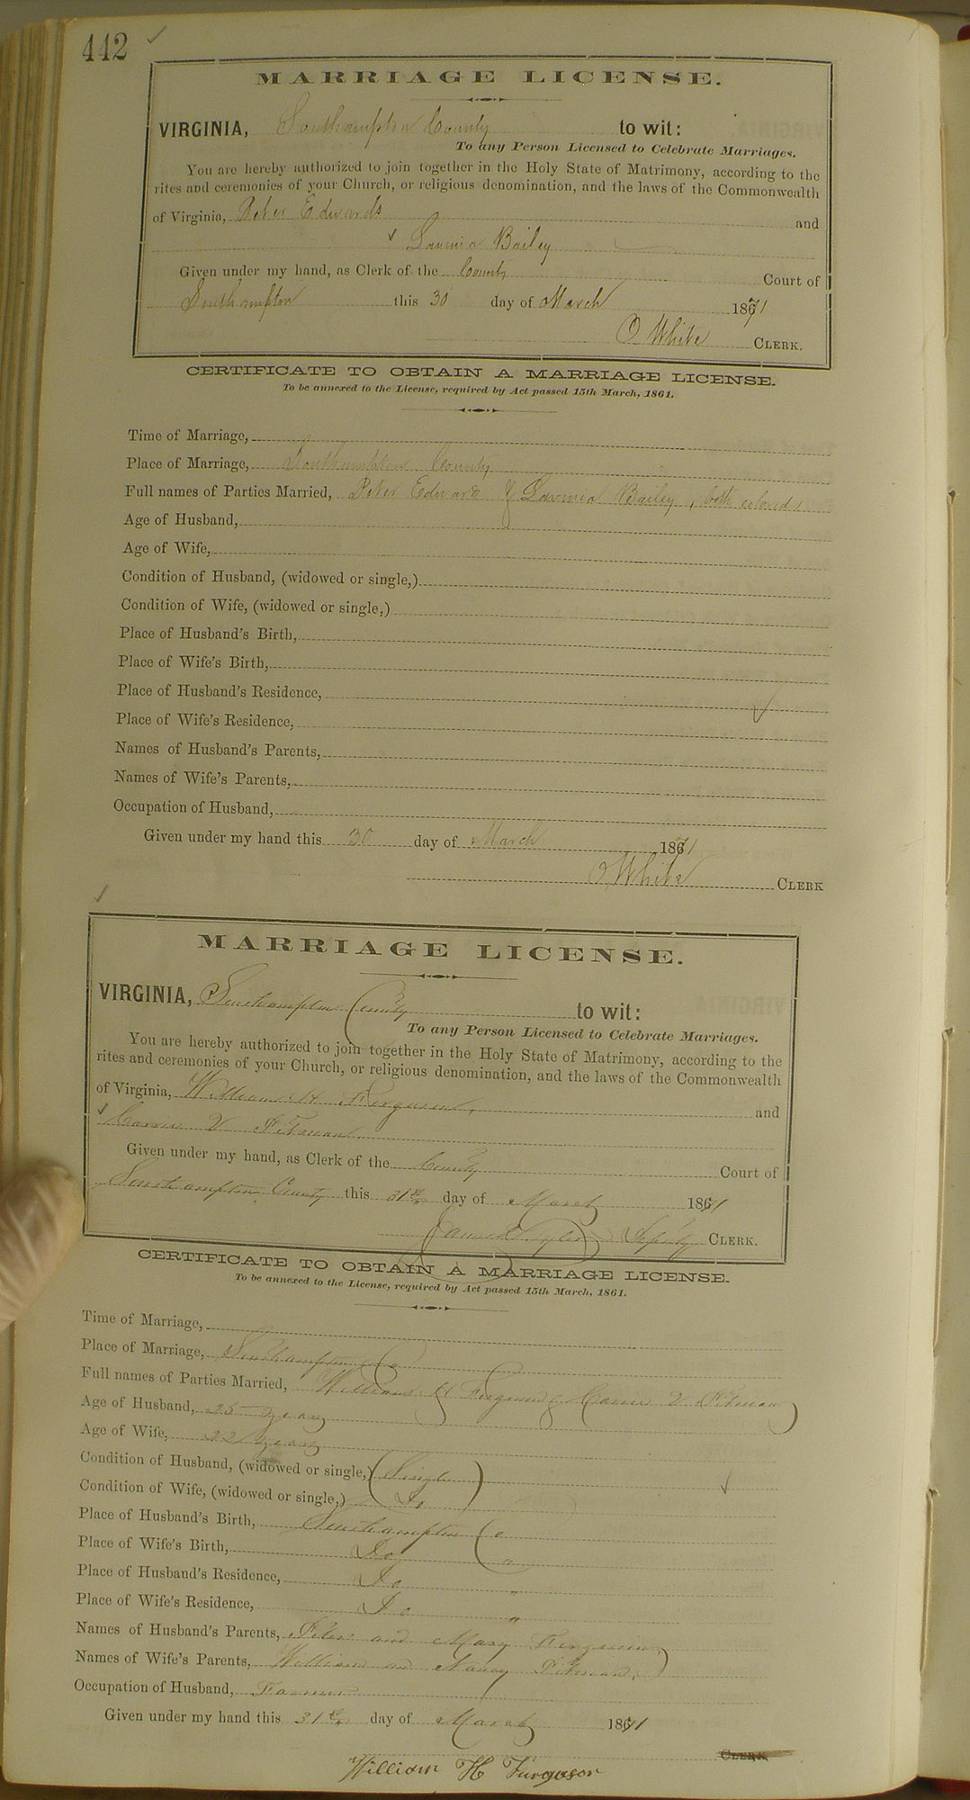 442
MARRIAGE LICENSE.
VIRGINIA, Southampton County to wit:
To any Person Licensed to Celebrate Marriages.
You are hereby authorized to join together in the Holy State of Matrimony, according to the
rites and ceremonies of your Church, or religious denomination, and the laws of the Commonwealth
of Virginia, Peter Edwards and
Bailey
Given under my hand, as Clerk of the County Court of
Southampton this 30 day of March 1871
O White CLERK.
CERTIFICATE TO OBTAIN A MARRIAGE LICENSE.
To be annexed to the License, required by Act passed 15th March, 1861.
Time of Marriage,
Place of Marriage, Southampton County
Full names of Parties Married, Peter Edwards & Bailey, both colored
Age of Husband,
Age of Wife,
Condition of Husband, (widowed or single,)
Condition of Wife, (widowed or single,)
Place of Husband's Birth,
Place of Wife's Birth,
Place of Husband's Residence,
Place of Wife's Residence,
Names of Husband's Parents,
Names of Wife's Parents,
Occupation of Husband,
Given under my hand this 30 day of March 1871
O White CLERK
MARRIAGE LICENSE.
VIRGINIA, Southampton County to wit:
To any Person Licensed to Celebrate Marriages.
You are hereby authorized to join together in the Holy State of Matrimony, according to the
rites and ceremonies of your Church, or religious denomination, and the laws of the Commonwealth
of Virginia, William H Ferguson, and
Carrie V. Pitman.
Given under my hand, as Clerk of the County Court of
Southampton County this 31st day of March 1871
Deputy CLERK.
CERTIFICATE TO OBTAIN A MARRIAGE LICENSE.
To be annexed to the License, required by Act passed 15th March, 1861.
Time of Marriage,
Place of Marriage, Southampton Co
Full names of Parties Married, William H Ferguson & Carrie V. Pitman
Age of Husband, 25 years
Age of Wife, 22 years
Condition of Husband, (widowed or single,) Single
Condition of Wife, (widowed or single,) Do
Place of Husband's Birth, Southampton Co
Place of Wife's Birth, Do "
Place of Husband's Residence, Do "
Place of Wife's Residence, Do "
Names of Husband's Parents, and Mary Ferguson
Names of Wife's Parents, William and Nancy Pitman,
Occupation of Husband, Farmer
Given under my hand this 31st day of March 1871
CLERK
William H Furguson